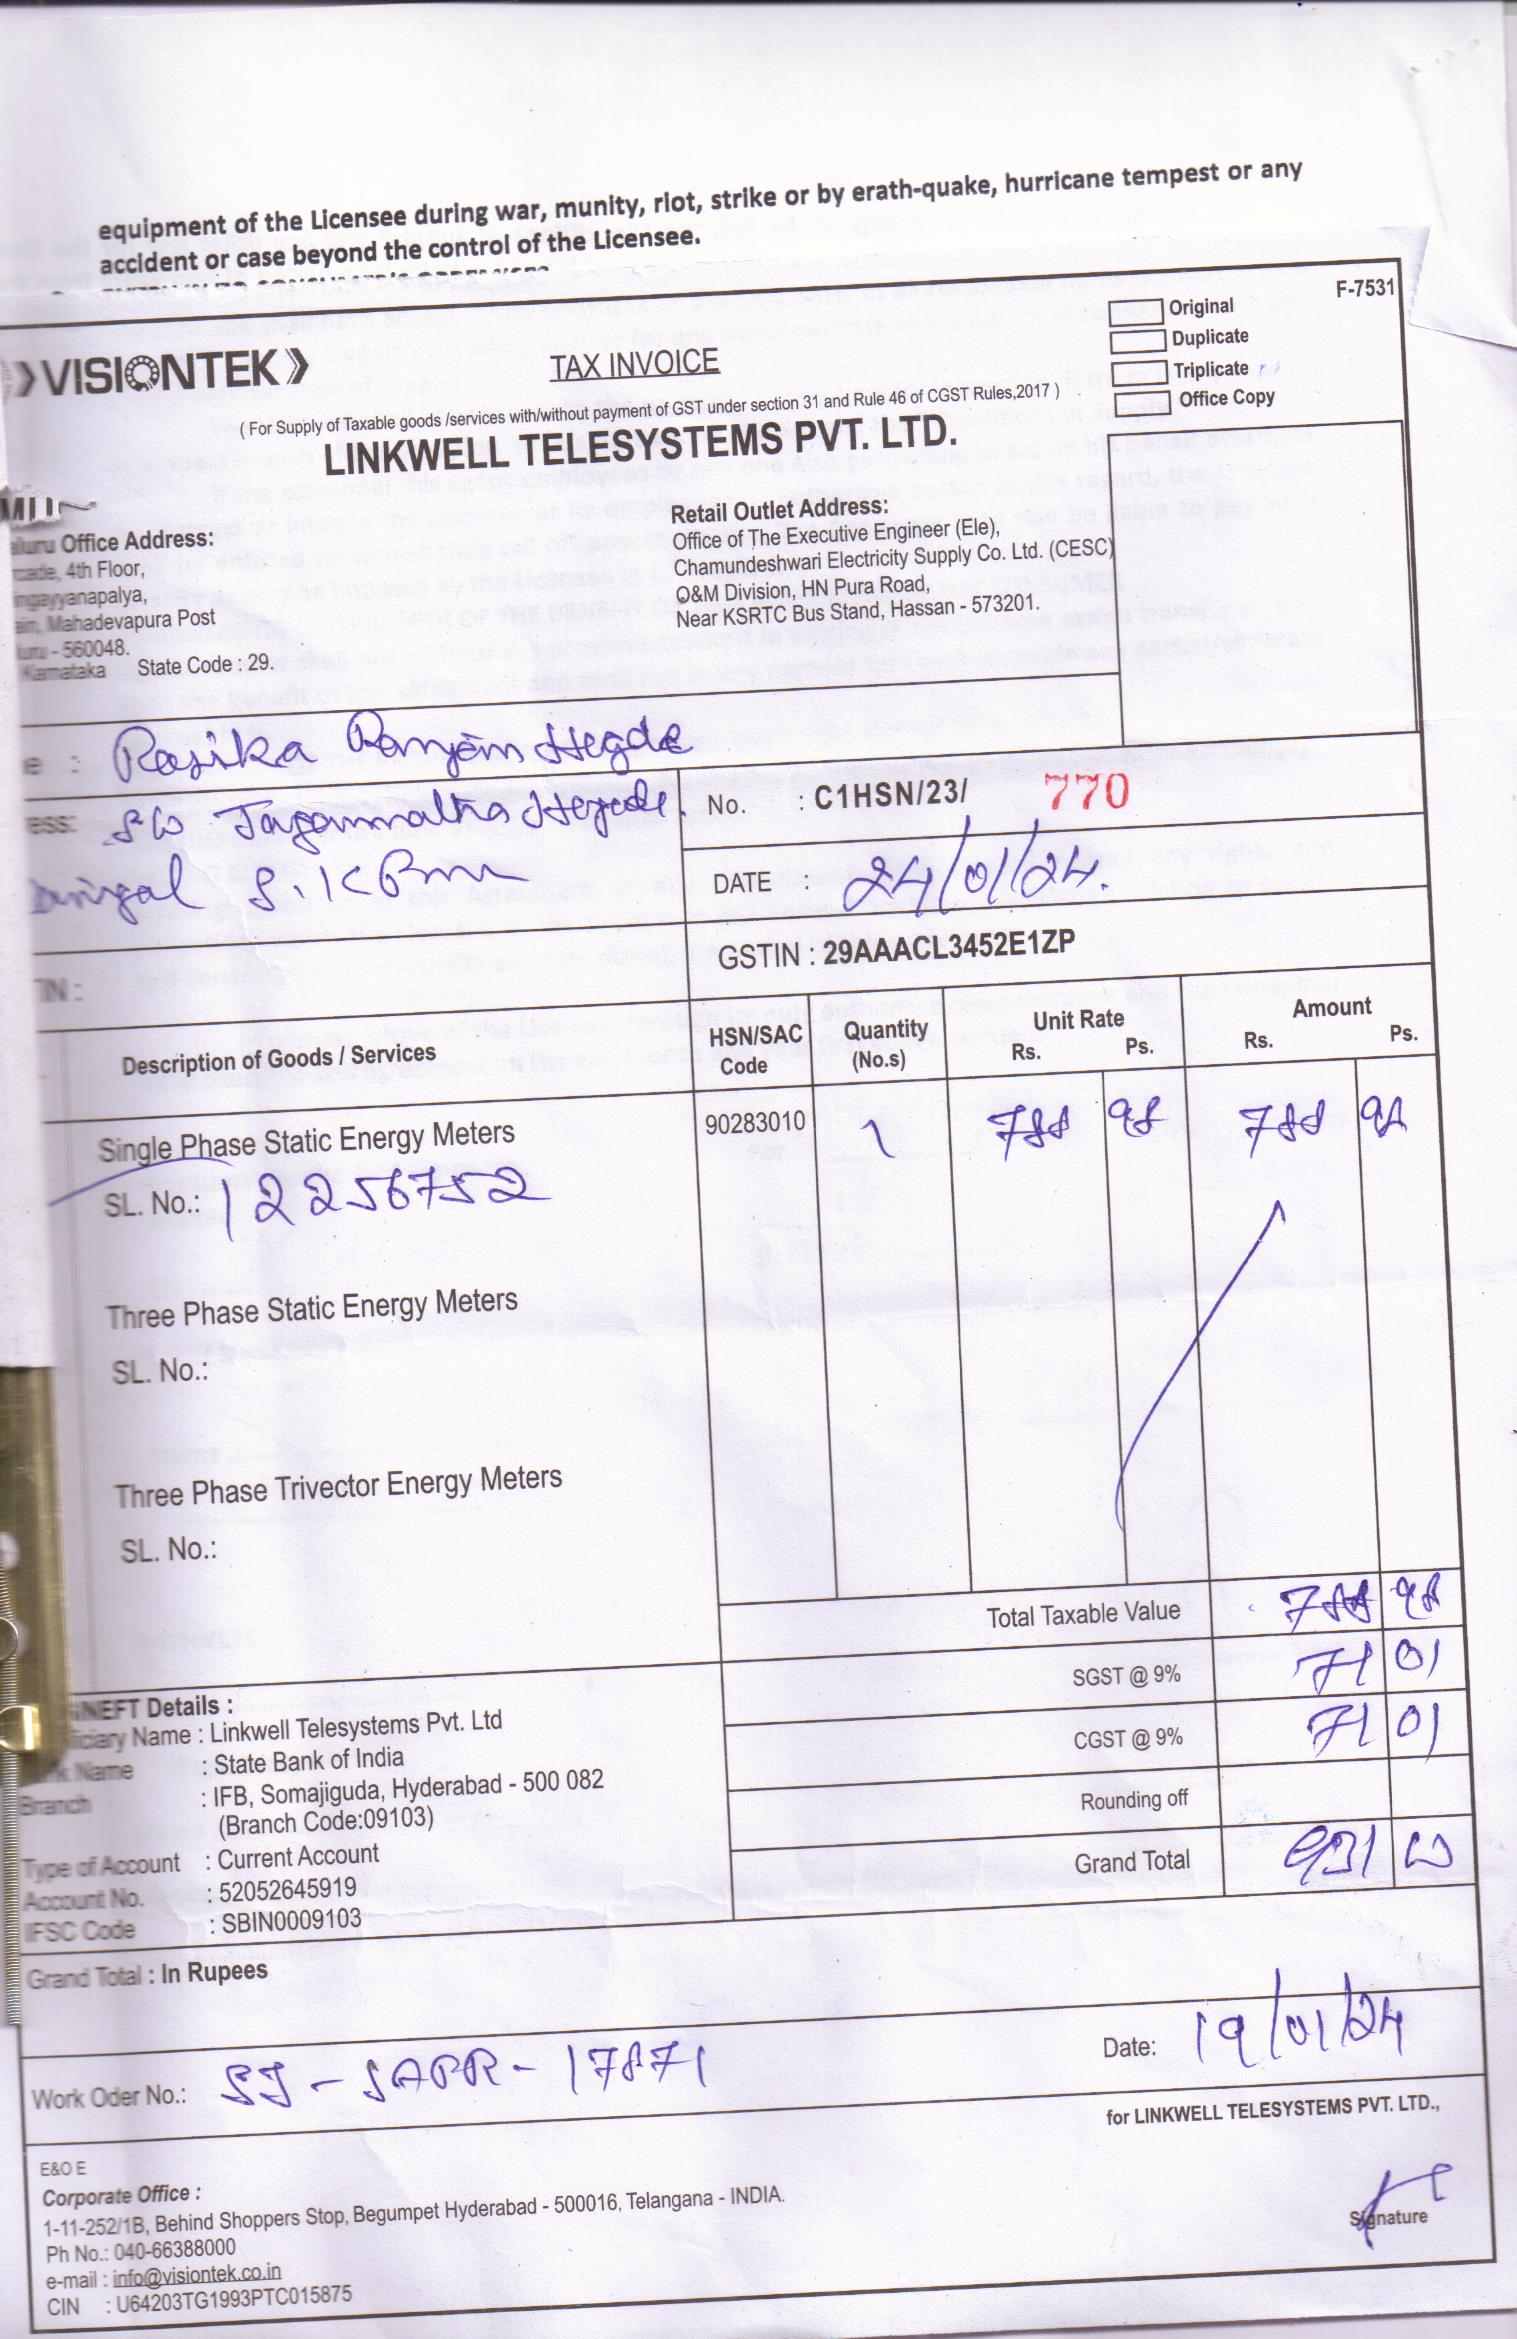 equipment of the Licensee during war, munity, riot, strike or by erath-quake, hurricane tempest or any
accident or case beyond the control of the Licensee.
F-7531
Original
Duplicate
Triplicate
Office Copy
VISIONTEK
TAX INVOICE
( For Supply of Taxable goods /services with/without payment of GST under section 31 and Rule 46 of CGST Rules,2017 )
LINKWELL TELESYSTEMS PVT. LTD.
aluru Office Address:
rcade, 4th Floor,
ingayyanapalya,
ain, Mahadevapura Post
luru - 560048.
Karnataka State Code : 29.
Retail Outlet Address:
Office of The Executive Engineer (Ele),
Chamundeshwari Electricity Supply Co. Ltd. (CESC)
O&M Division, HN Pura Road,
Near KSRTC Bus Stand, Hassan - 573201.
e : Rasika Ranjan Hegde
ess: S/o Jagannatha Hegde.
No. : C1HSN/23/ 770
DATE : 24/01/24.
TIN :
GSTIN : 29AAACL3452E1ZP
Description of Goods / Services
HSN/SAC Code
Quantity (No.s)
Unit Rate
Rs. Ps.
Amount
Rs. Ps.
Single Phase Static Energy Meters 90283010 1 788 98 788 98
SL. No.: 12256752
Three Phase Static Energy Meters
SL. No.:
Three Phase Trivector Energy Meters
SL. No.:
Total Taxable Value 788 98
SGST @ 9% 71 01
CGST @ 9% 71 01
Rounding off
Grand Total 931 00
NEFT Details :
iciary Name : Linkwell Telesystems Pvt. Ltd
Name : State Bank of India
Branch : IFB, Somajiguda, Hyderabad - 500 082
(Branch Code:09103)
Type of Account : Current Account
Account No. : 52052645919
IFSC Code : SBIN0009103
Grand Total : In Rupees
Work Oder No.: SJ-SAPR-17871
Date: 19/01/24
for LINKWELL TELESYSTEMS PVT. LTD.,
Signature
E&O E
Corporate Office :
1-11-252/1B, Behind Shoppers Stop, Begumpet Hyderabad - 500016, Telangana - INDIA.
Ph No.: 040-66388000
e-mail : info@visiontek.co.in
CIN : U64203TG1993PTC015875